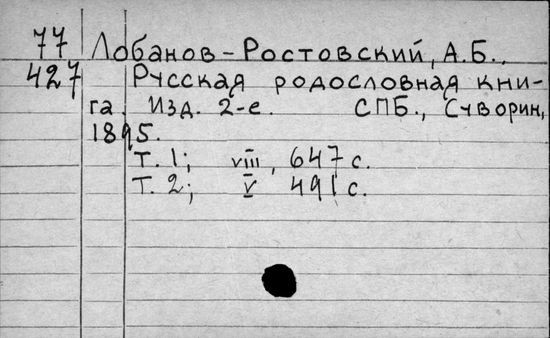 77 Лобанов-Ростовский, А.Б.,
427 Русская родословная кни-
га. Изд. 2-е. СПБ., Суворин,
1895.
Т. 1; viii, 647 с.
Т. 2; V 491 с.